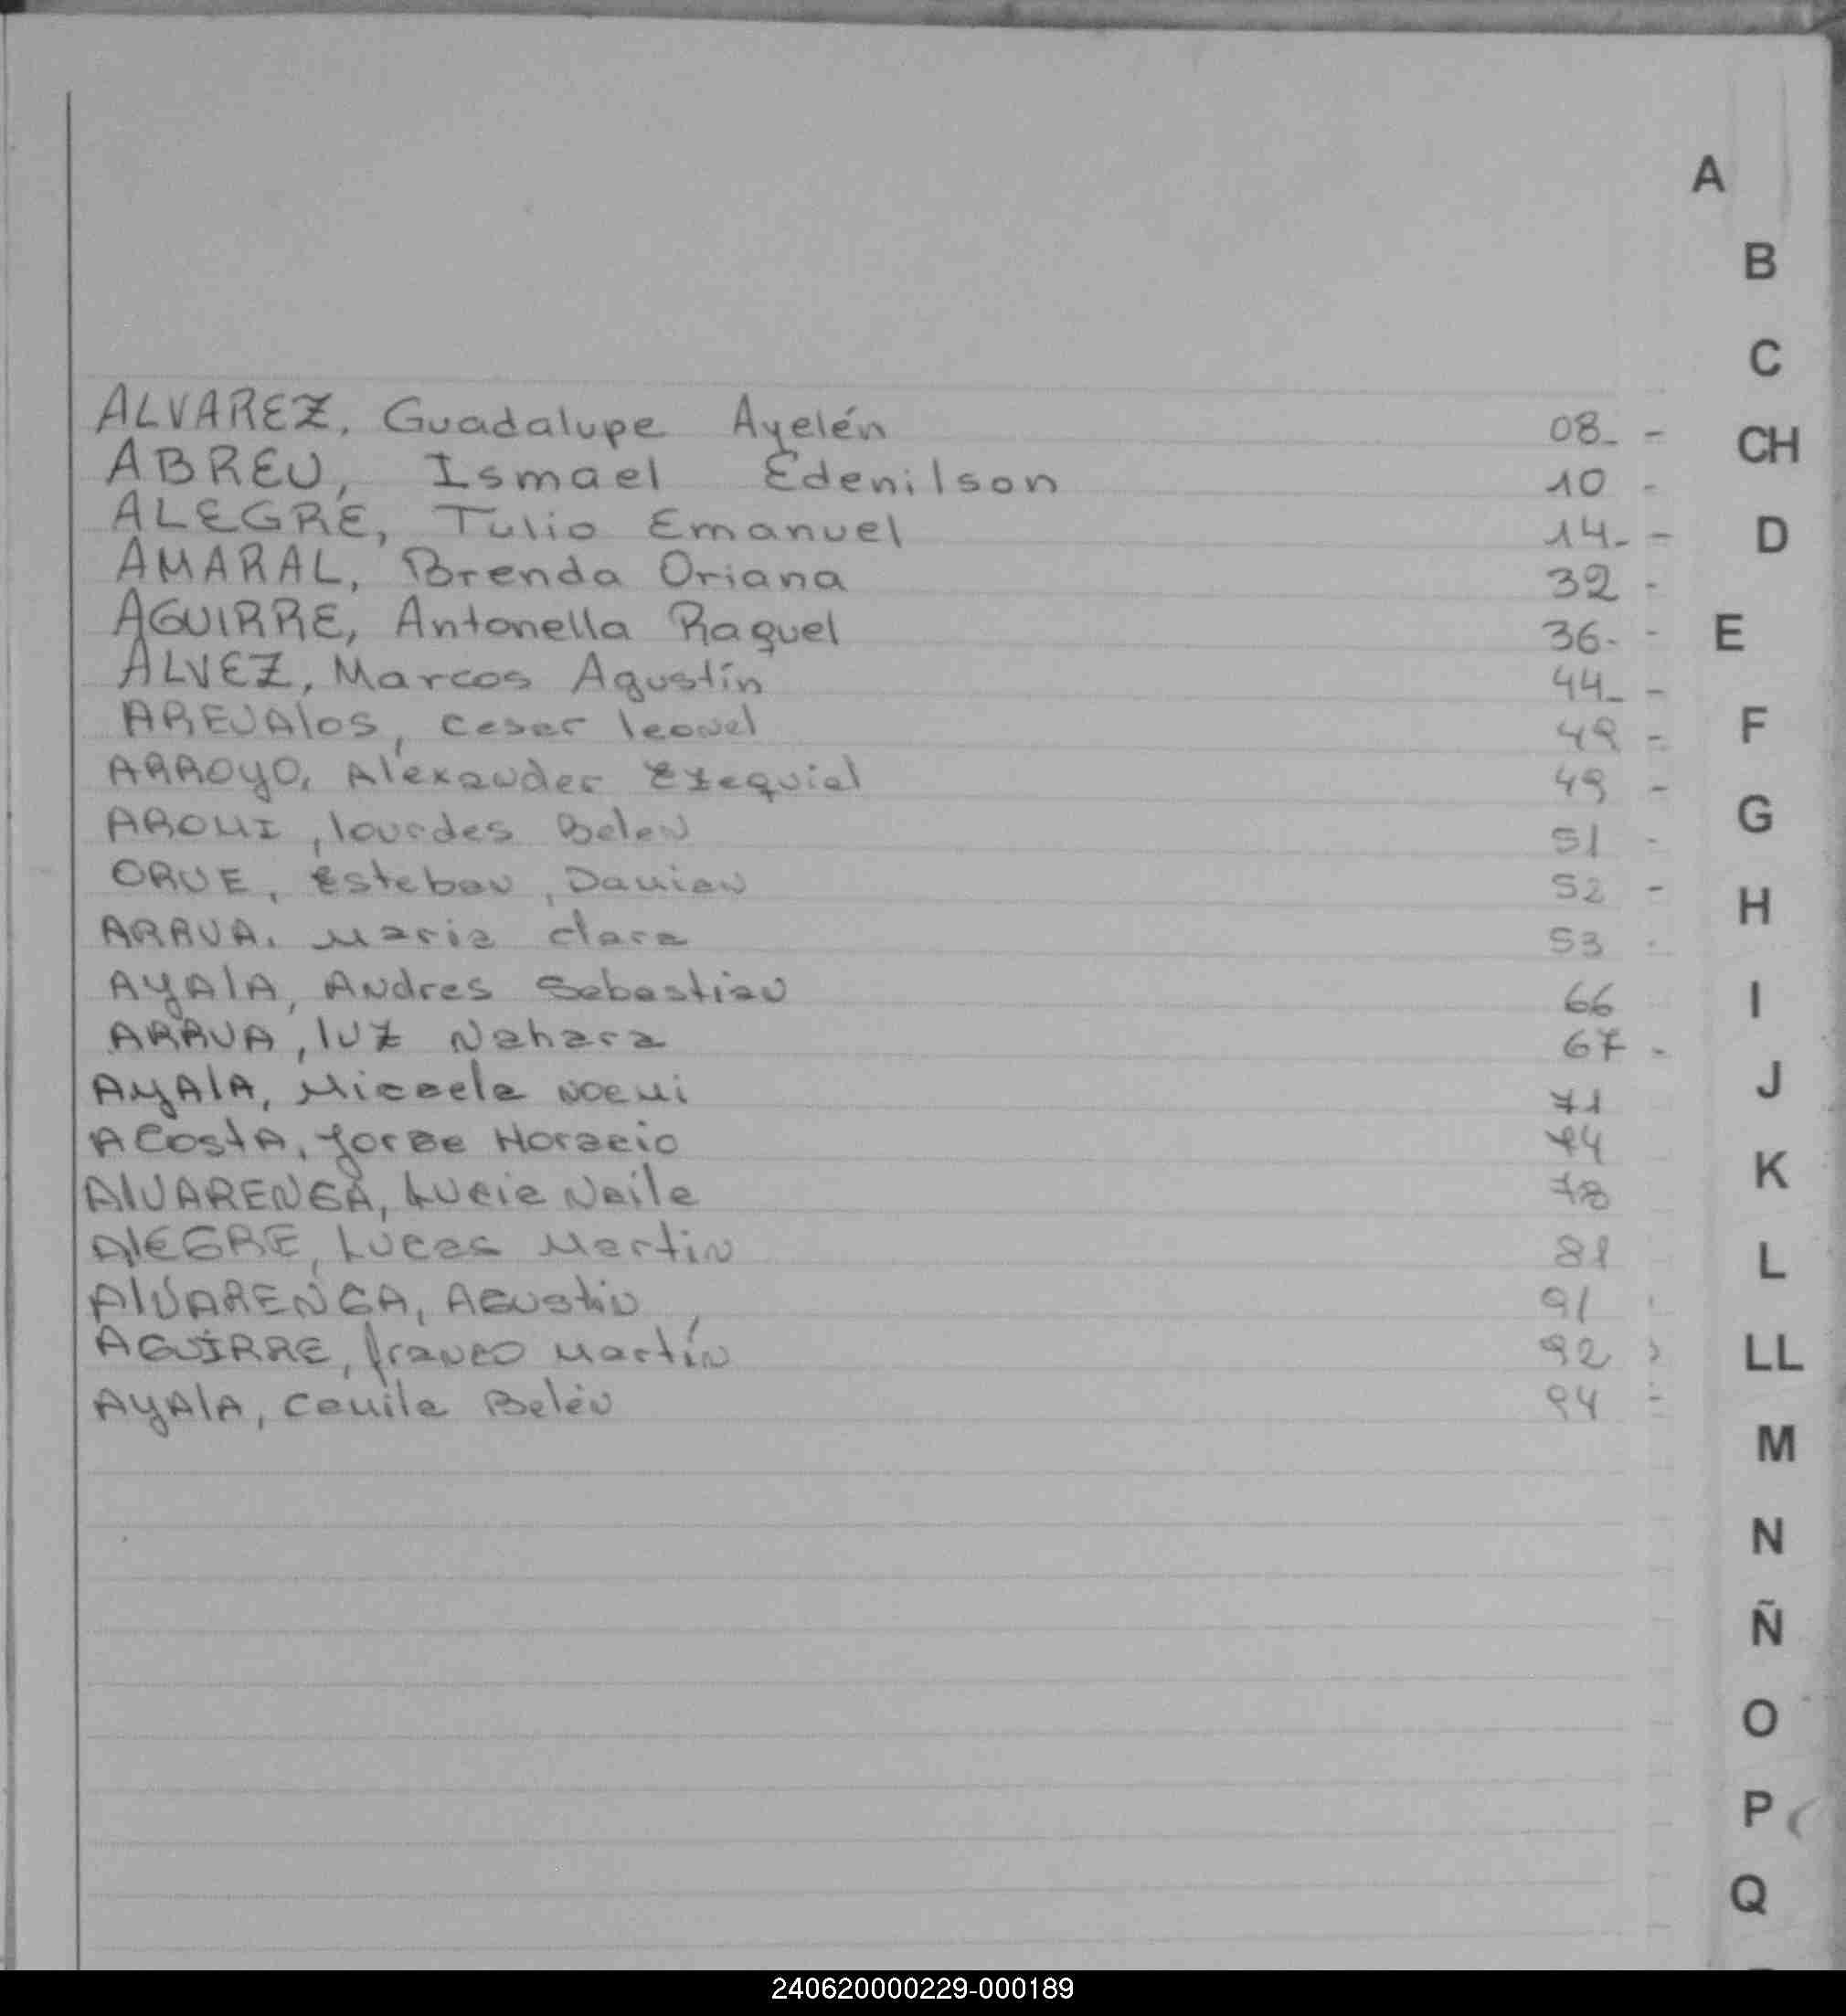 A
B
C
ALVAREZ, Guadalupe Ayelén 08_ -
CH
ABREU, Ismael Edenilson 10 -
ALEGRE, Tulio Emanuel 14_ -
D
AMARAL, Brenda Oriana 32 -
AGUIRRE, Antonella Raquel 36- -
E
ALVEZ, Marcos Agustín 44_ -
AREVAlos, Cesar leonel 49 -
F
ARROyO, Alexander Ezequiel 49 -
G
AROMI, lourdes Belen 51 -
ORUE, Esteban, Damian 52 -
H
ARRUA, Maria clara 53 -
AyAlA, Andres Sebastian 66
I
ARRUA, luz Nahara 67 -
J
AyAlA, Micaela Noemi 71
ACostA, Jorge Horacio 74
K
AlVARENGA, Lucia Naila 78
AlEGRE, Lucas Martin 81
L
AlVARENGA, Agustin 91
AGUIRRE, franco Martín 92
LL
AyAlA, Camila Belén 94 -
M
N
Ñ
O
P
Q
240620000229-000189